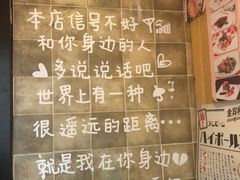 本店信号不好
和你身边的人
多说说话吧
世界上有一种
很遥远的距离...
就是我在你身边
ハイボール